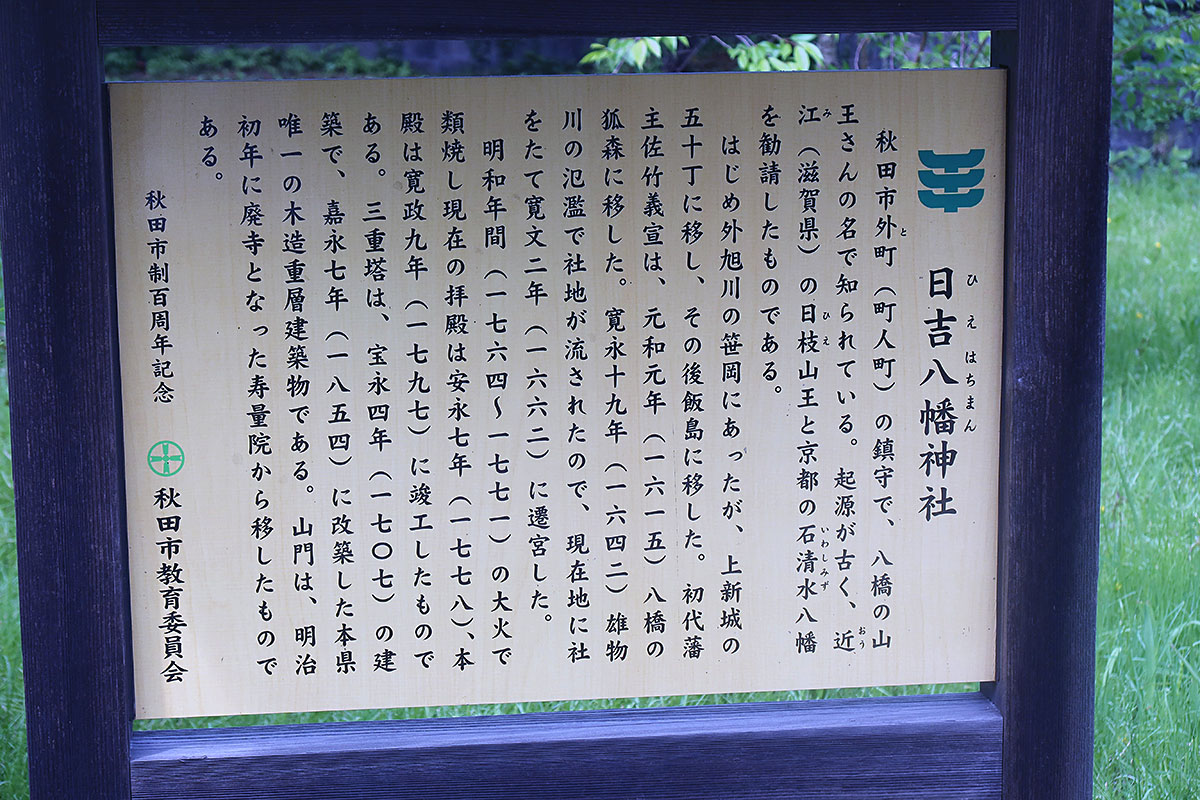 日吉八幡神社
ひえはちまん
秋田市外町（町人町）の鎮守で、八橋の山
と
王さんの名で知られている。起源が古く、近
おう
江（滋賀県）の日枝山王と京都の石清水八幡
み
ひえ
いわしみず
を勧請したものである。
はじめ外旭川の笹岡にあったが、上新城の
五十丁に移し、その後飯島に移した。初代藩
主佐竹義宣は、元和元年（一六一五）八橋の
狐森に移した。寛永十九年（一六四二）雄物
川の氾濫で社地が流されたので、現在地に社
をたて寛文二年（一六六二）に遷宮した。
明和年間（一七六四〜一七七一）の大火で
類焼し現在の拝殿は安永七年（一七七八）、本
殿は寛政九年（一七九七）に竣工したもので
ある。三重塔は、宝永四年（一七〇七）の建
築で、嘉永七年（一八五四）に改築した本県
唯一の木造重層建築物である。山門は、明治
初年に廃寺となった寿量院から移したもので
ある。
秋田市制百周年記念
秋田市教育委員会